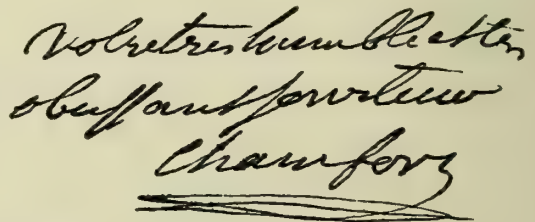 votre tres humble et tres
obeissant serviteur
Chamfort